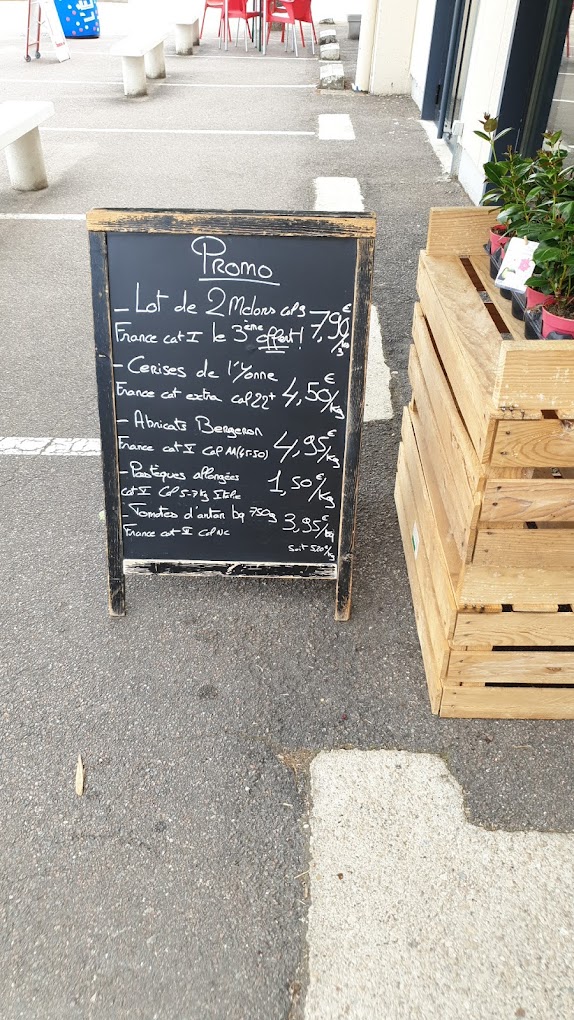 Promo
- Lot de 2 Melons cal 3 7,90€
France cat I le 3ème offert! /les 3
- Cerises de l'Yonne
France cat extra cal 22+ 4,50€/kg
- Abricots Bergeron
France cat I Cal AA(45-50) 4,95€/kg
- Pastèques allongées
cat I Cal 5-7kg Italie 1,50€/kg
- Tomates d'antan bq 750g 3,95€/bq
France cat II Cal NC
Soit 5,26€/kg